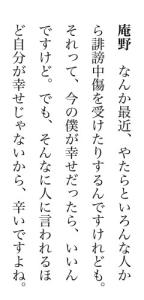 庵野　なんか最近、やたらといろんな人か
ら誹謗中傷を受けたりするんですけれども。
それって、今の僕が幸せだったら、いいん
ですけど。でも、そんなに人に言われるほ
ど自分が幸せじゃないから、辛いですよね。